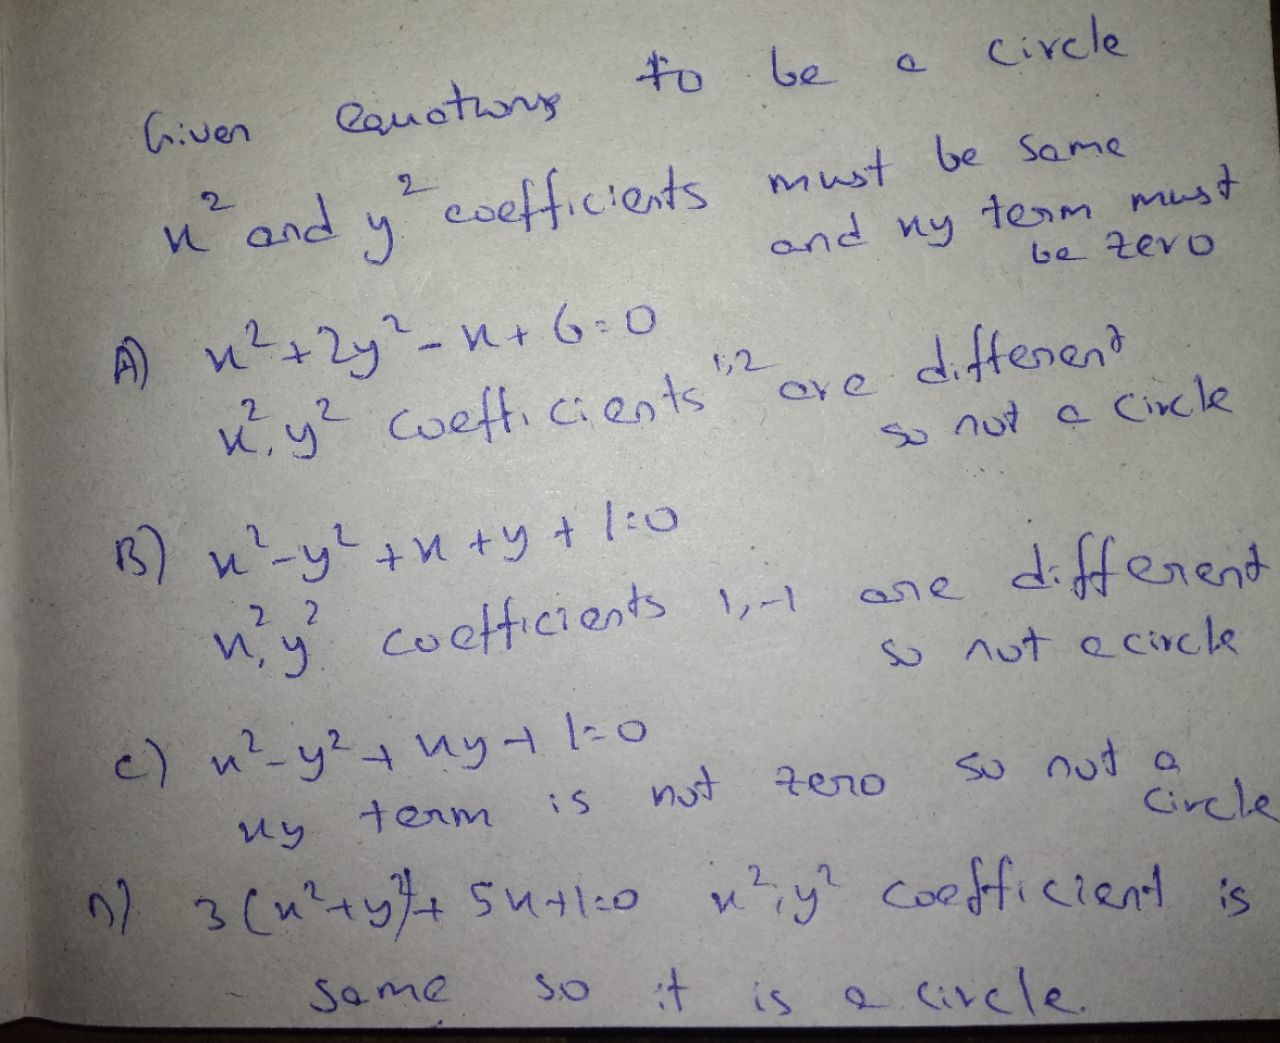 Given equations to be a circle
x² and y² coefficients must be same
and xy term must
be zero
A) x²+2y²-x+6=0
x², y² coefficients 1,2 are different
so not a circle
B) x²-y²+x+y+1=0
x², y² coefficients 1,-1 are different
so not a circle
C) x²-y²+xy+1=0
xy term is not zero so not a
circle
D) 3(x²+y²)+5x+1=0 x², y² coefficient is
same so it is a circle.